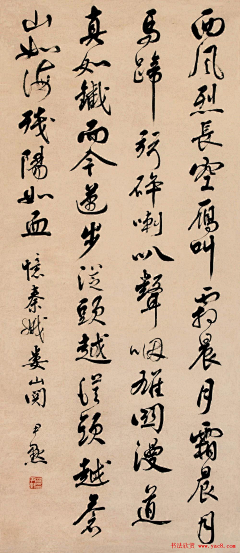 西風烈長空雁叫霜晨月霜晨月
馬蹄聲碎喇叭聲咽雄関漫道
真如鐵而今邁步從頭越從頭越蒼
山如海殘陽如血 憶秦娥婁山関 尹默
书法欣赏 www.yac8.com